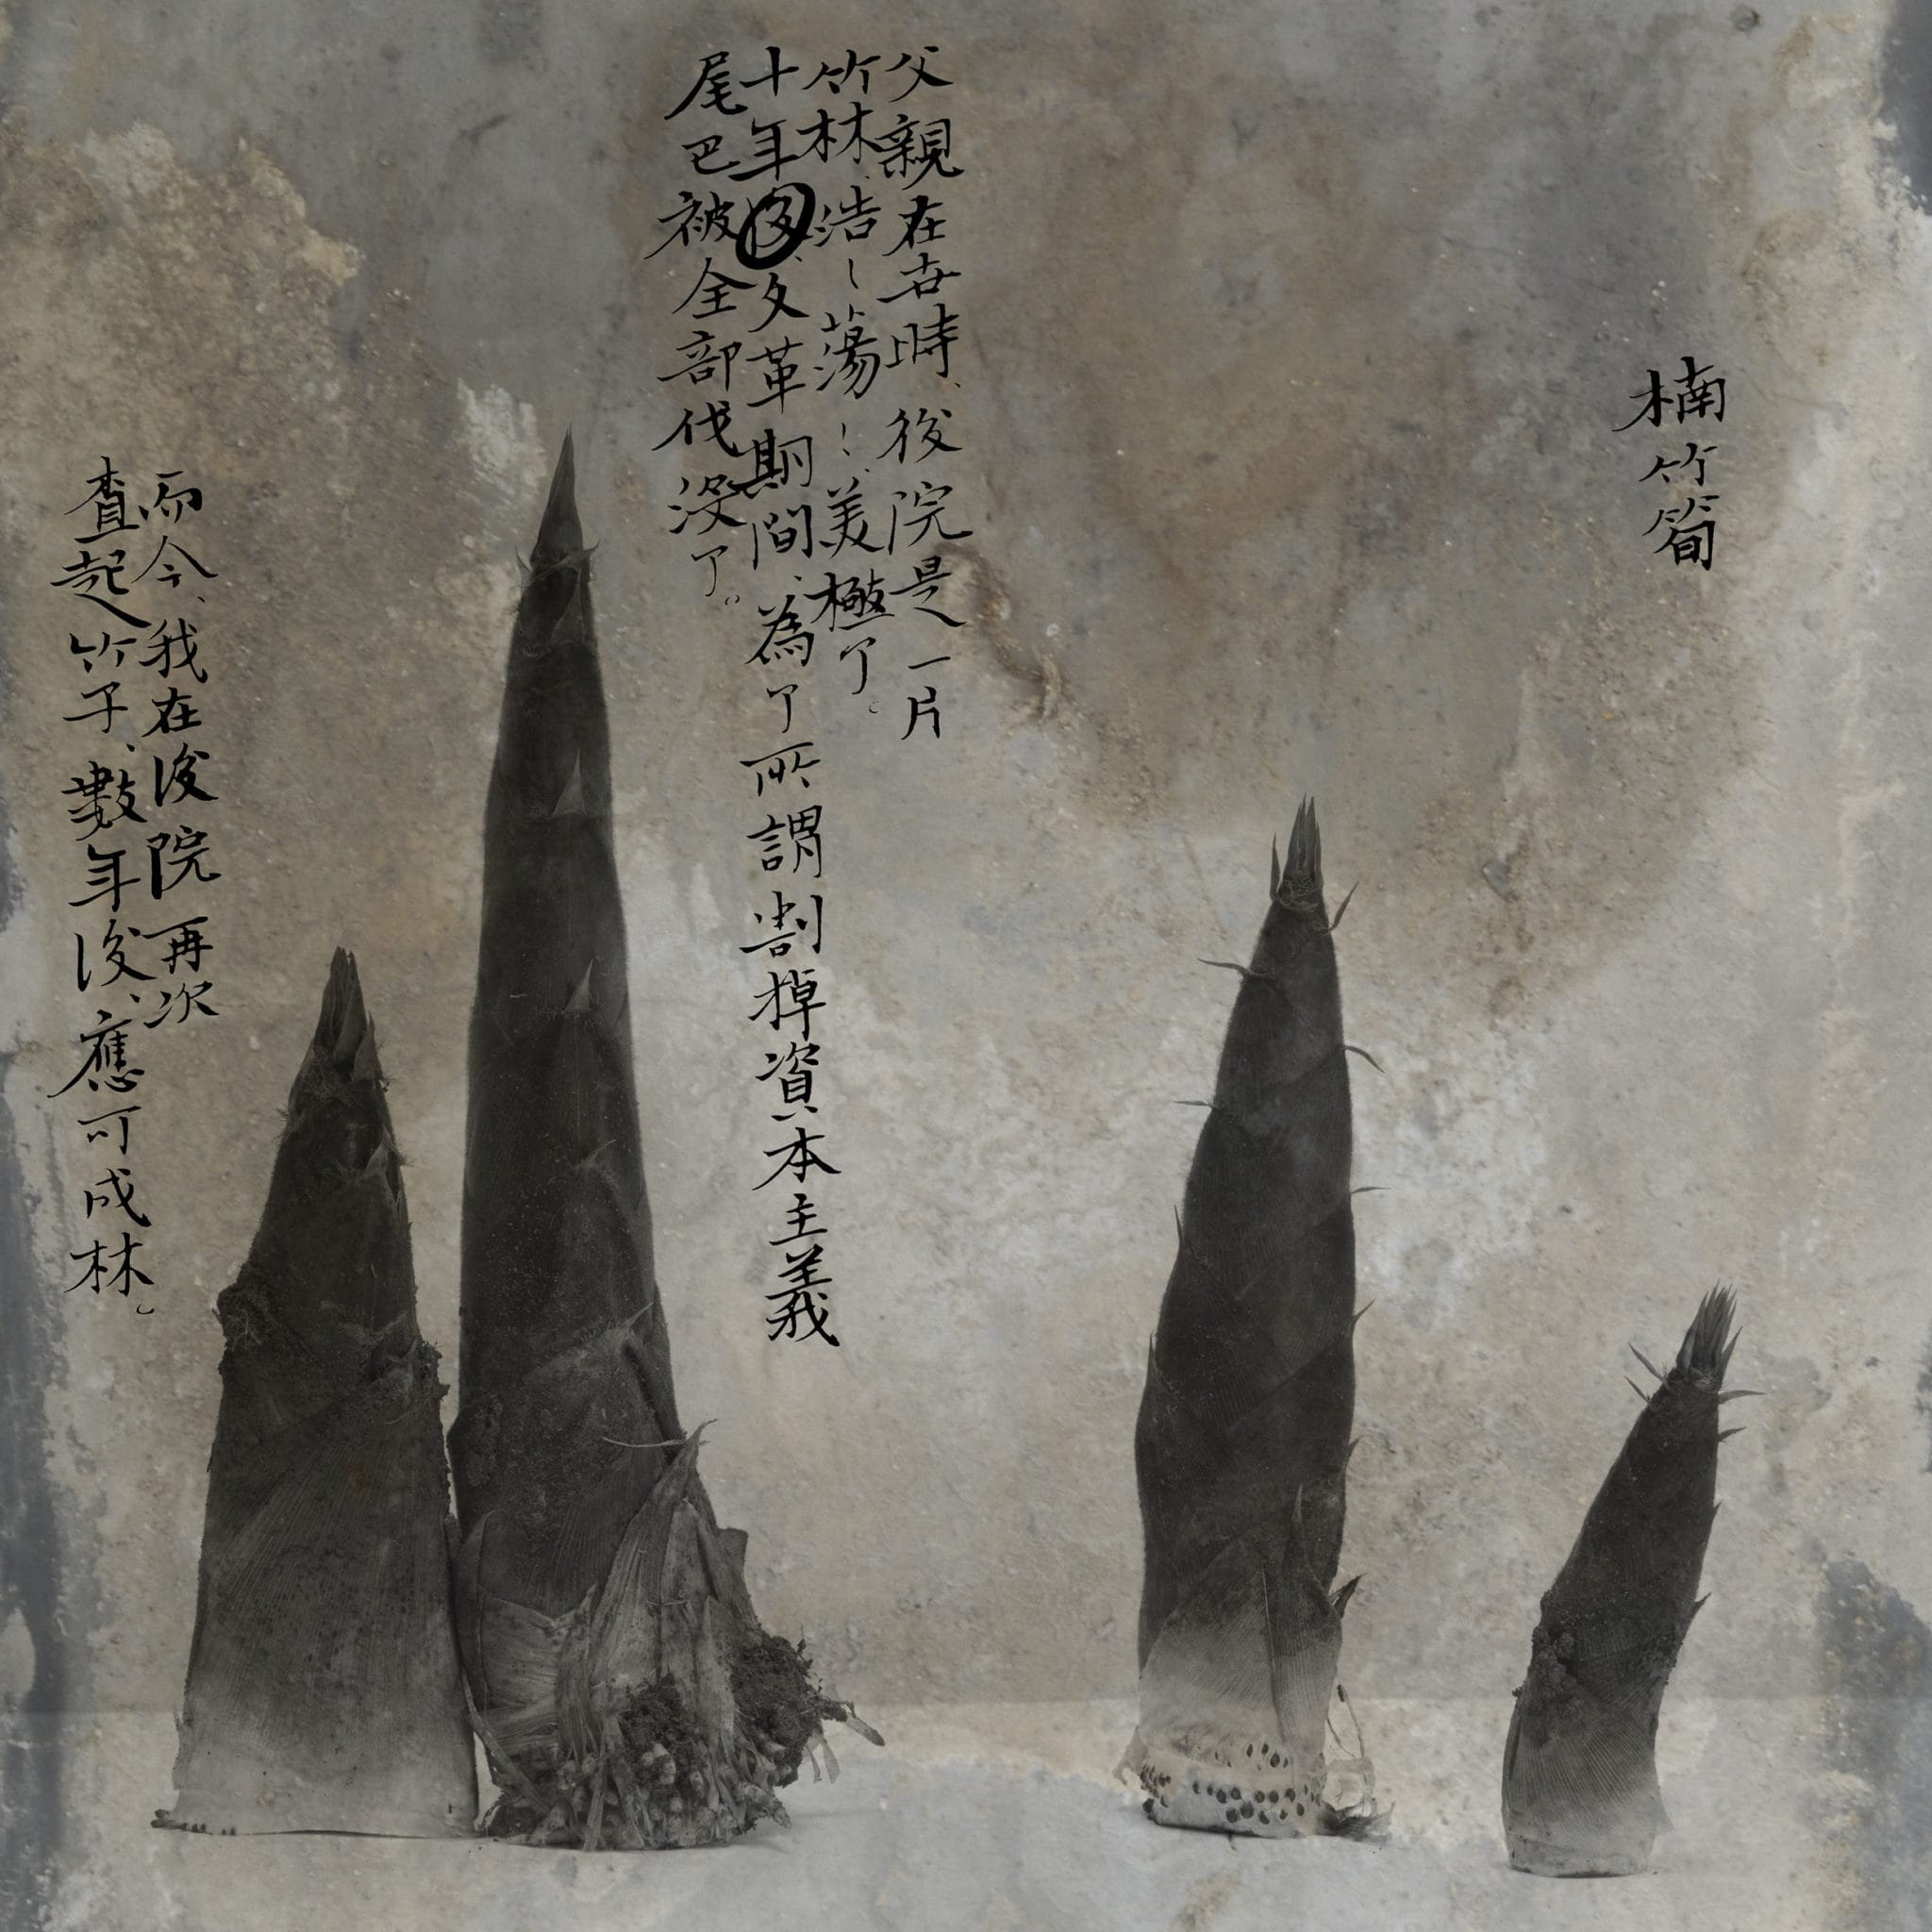 楠竹筍
父親在世時、後院是一片
竹林、浩〻蕩〻、美極了。
十年、文革期間、為了所謂割掉資本主義
尾巴被全部伐没了。
而今、我在後院再次
查起竹子、數年後、應可成林。